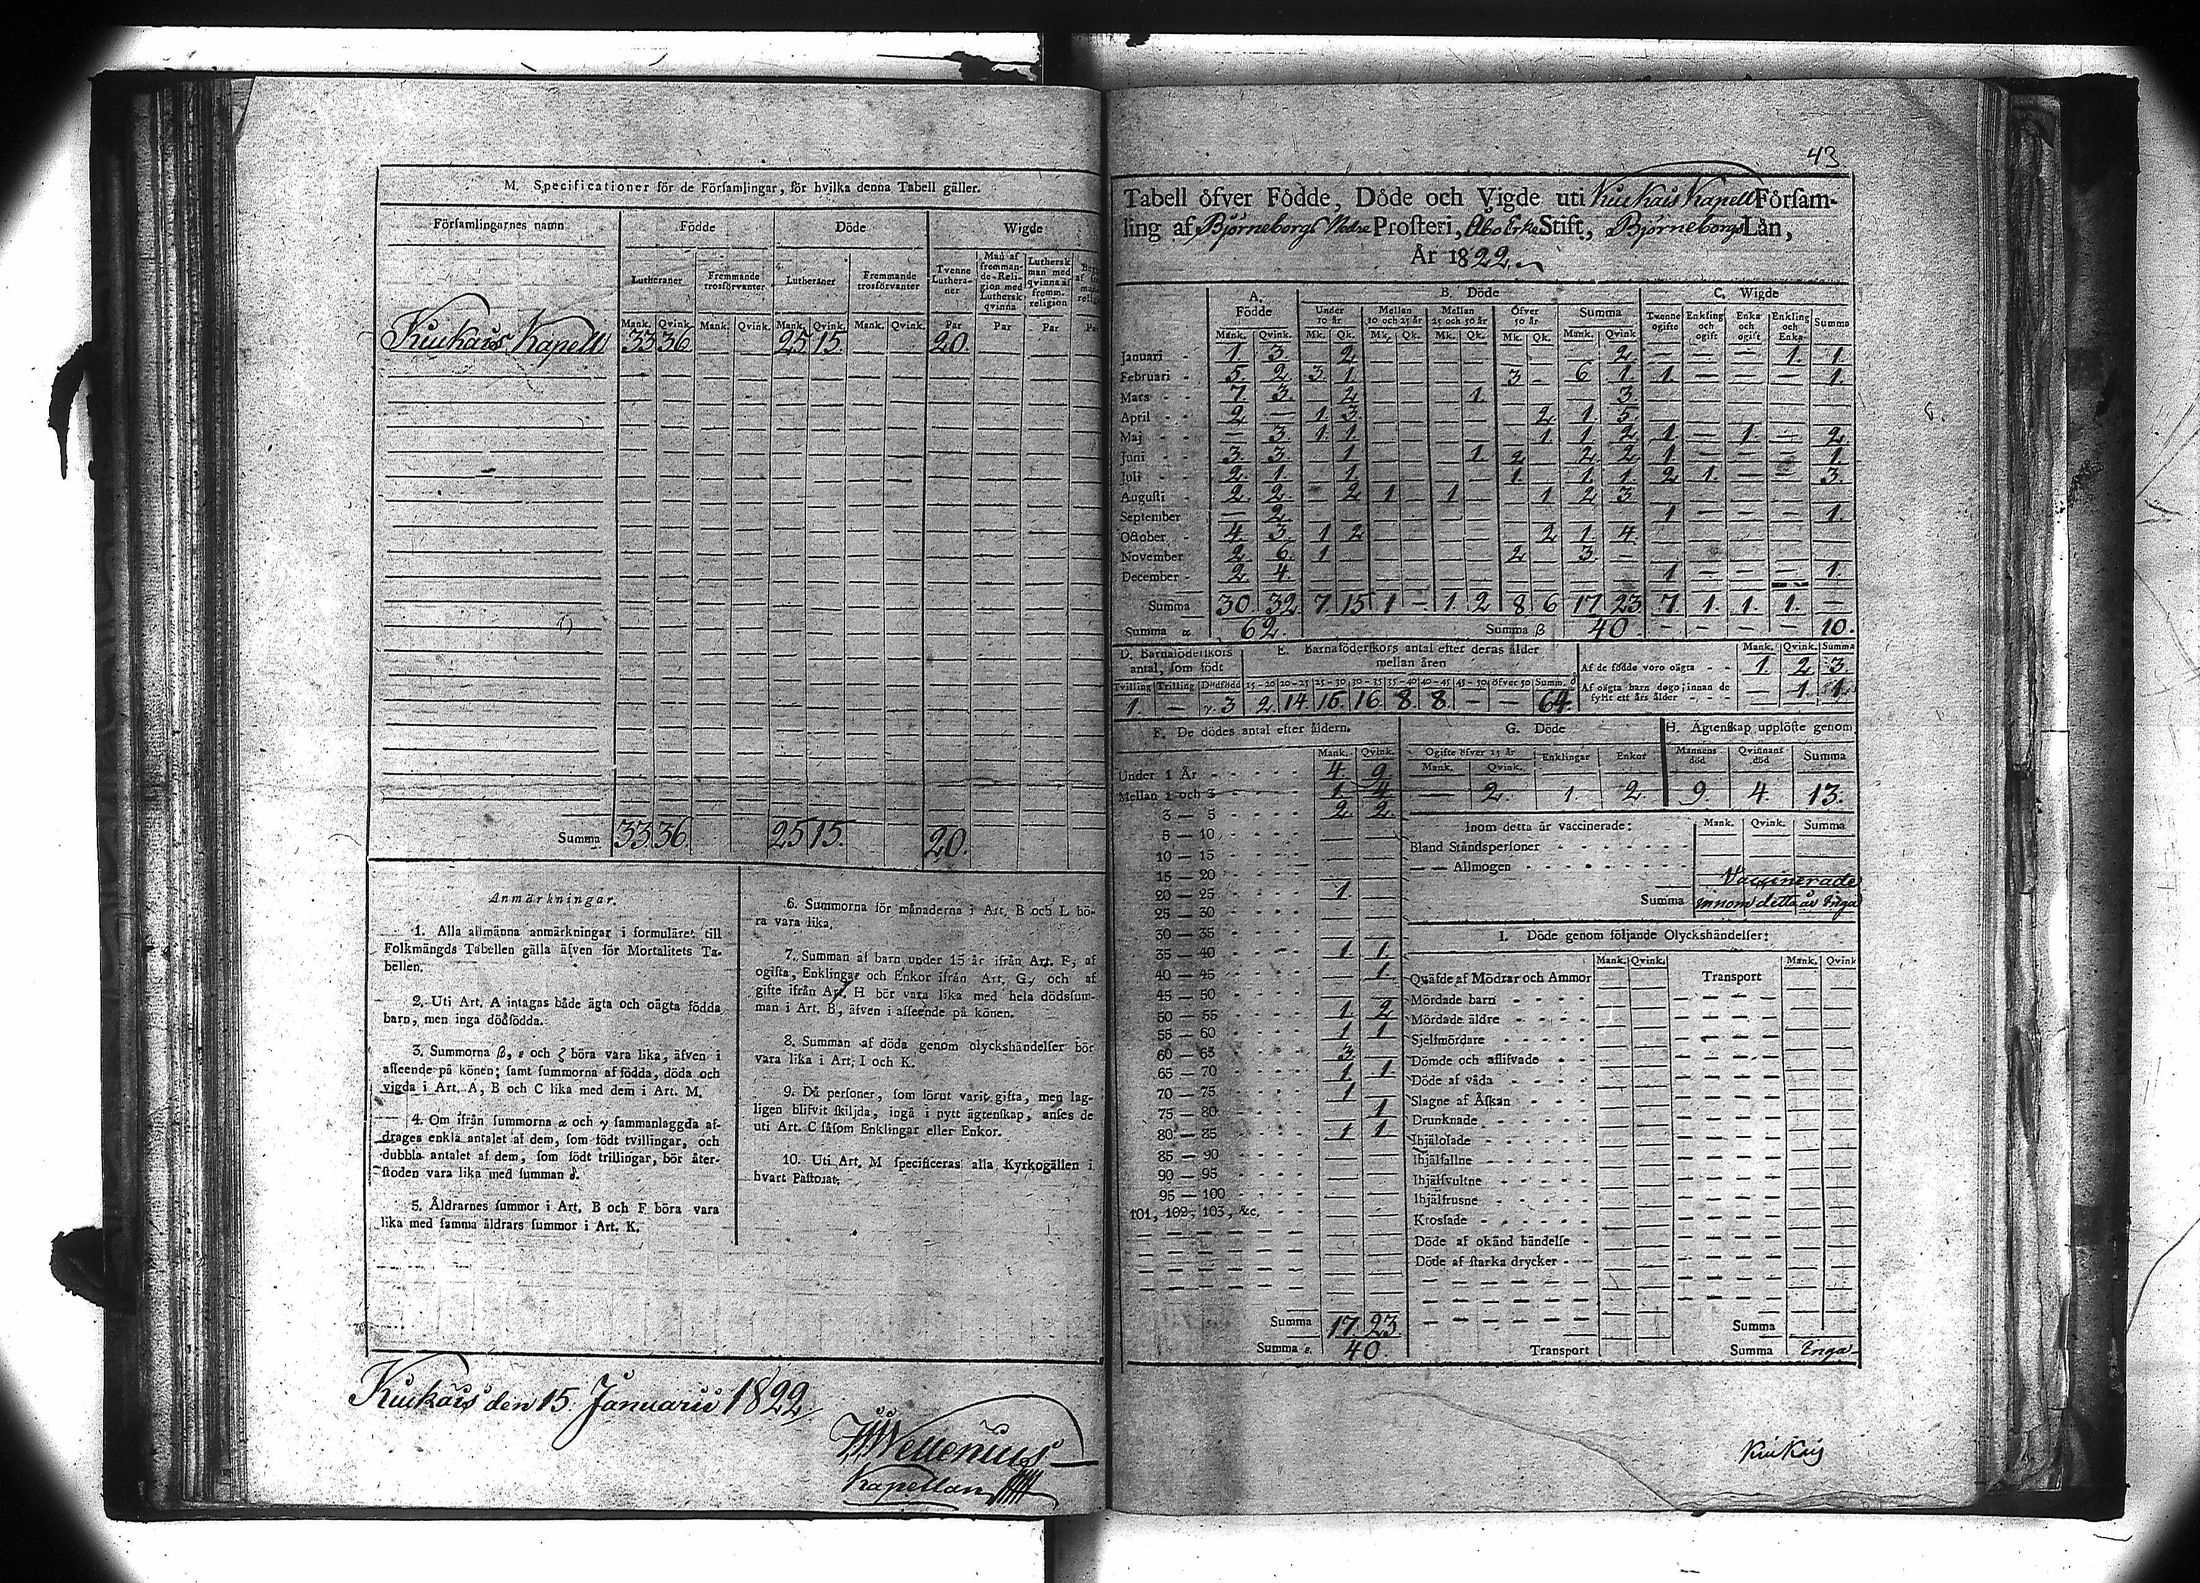 M. Specificationer för de Församlingar, för hvilka denna Tabell gäller.
Församlingarnes namn Födde Döde Wigde
Lutheraner Fremmande trosförvanter Lutheraner Fremmande trosförvanter Tvenne Lutheraner Man af fremmande Religion med Luthersk qvinna Luthersk man med qvinna af fremm. religion
Mank. Qvink. Mank. Qvink. Mank. Qvink. Mank. Qvink. Par Par Par
Kiukais Kapell 33 36 25 15 20.
Summa 33 36. 25 15. 20.
Anmärkningar.
1. Alla allmänna anmärkningar i formuläret till
Folkmängds Tabellen gälla äfven för Mortalitets Ta-
bellen.
2. Uti Art. A intagas både ägta och oägta födda
barn, men inga dödfödda.
3. Summorna β, ε och ζ böra vara lika, äfven i
afseende på könen; samt summorna af födda, döda och
vigda i Art. A, B och C lika med dem i Art. M.
4. Om ifrån summorna α och γ sammanlaggda af-
drages enkla antalet af dem, som födt tvillingar, och
dubbla antalet af dem, som födt trillingar, bör åter-
stoden vara lika med summan δ.
5. Åldrarnes summor i Art. B och F böra vara
lika med samma åldrars summor i Art. K.
6. Summorna för månaderna i Art. B och L bö-
ra vara lika.
7. Summan af barn under 15 år ifrån Art. F, af
ogifta, Enklingar och Enkor ifrån Art. G, och af
gifte ifrån Art. H bör vara lika med hela dödssum-
man i Art. B, äfven i afseende på könen.
8. Summan af döda genom olyckshändelser bör
vara lika i Art. I och K.
9. Då personer, som förut varit gifta, men lag-
ligen blifvit skiljda, ingå i nytt ägtenskap, anses de
uti Art. C såsom Enklingar eller Enkor.
10. Uti Art. M specificeras alla Kyrkogällen i
hvart Pastorat.
Kiukais den 15. Januarii 1822.
Kapellan
43
Tabell öfver Födde, Döde och Vigde uti Kiukais Kapell Försam-
ling af Björneborgs Nedre Prosteri, Åbo Erke Stift, Björneborgs Län,
År 1822.
A. Födde B. Döde C. Wigde
Under 10 år Mellan 10 och 25 år Mellan 25 och 50 år Öfver 50 år Summa Twenne ogifte Enkling och ogift Enka och ogift Enkling och Enka Summa
Mank. Qvink. Mk. Qk. Mk. Qk. Mk. Qk. Mk. Qk. Mank. Qvink.
Januari 1. 3. — 2 — — — — — — — 2 — — — 1. 1.
Februari 5 2 3. 1 — — — — 3 — 6 1 1. — — — 1.
Mars 7 3. — 2 — — — 1. — — — 3 — — — — —
April 2 — 1. 3. — — — — — 2 1. 5 — — — — —
Maj — 3. 1. 1 — — — — — 1 1 2 1. — 1. — 2.
Juni 3 3. — 1 — — — 1. 2 — 2 2 1 — — — 1.
Juli 2. 1. — 1. — — — — 1. — 1. 1. 2 1. — — 3.
Augusti 2 2. — 2 1 — 1 — — 1 2 3 — — — — —
September — 2 — — — — — — — — — — 1 — — — 1.
October 4 3. 1 2 — — — — — 2 1 4 — — — — —
November 2 6. 1 — — — — — 2 — 3. — — — — — —
December 2 4. — — — — — — — — — — 1 — — — 1.
Summa 30 32 7. 15 1 — 1. 2 8 6 17 23 7 1. 1. 1. —
Summa α 62. Summa β 40. — — — — 10.
D. Barnaföderskors antal, som födt E. Barnaföderskors antal efter deras ålder mellan åren Mank. Qvink. Summa
Af de födde voro oägta 1. 2 3.
Tvilling Trilling Dödfödd 15-20 20-25 25-30 30-35 35-40 40-45 45-50 öfver 50 Summ. δ
Af oägta barn dogo innan de fyllt ett års ålder — 1. 1.
1. — γ. 3 2. 14 15. 16 8. 8. — — 64.
F. De dödes antal efter åldern. G. Döde H. Ägtenskap uplöste genom
Mank. Qvink. Ogifte öfver 15 år Enklingar Enkor Mannens död Qvinnans död Summa
Mank. Qvink.
Under 1 År 4. 9.
Mellan 1 och 3 1. 4 — 2. 1. 2. 9. 4. 13.
3 — 5 2. 2.
5 — 10
10 — 15
15 — 20
20 — 25 1.
25 — 30
30 — 35
35 — 40 1. 1.
40 — 45 1.
45 — 50
50 — 55 1. 2
55 — 60 1 1
60 — 65 3.
65 — 70 1 1
70 — 75 1
75 — 80 1
80 — 85 1 1
85 — 90
90 — 95
95 — 100
101, 102, 103, &c.
Summa 17. 23.
Summa ε. 40.
Inom detta år vaccinerade: Mank. Qvink. Summa
Bland Ståndspersoner
— — Allmogen
Vaccinerade
Summa innom detta år Inga
I. Döde genom följande Olyckshändelser:
Mank. Qvink. Mank. Qvink
Qväfde af Mödrar och Ammor Transport
Mördade barn
Mördade äldre
Sjelfmördare
Dömde och aflifvade
Döde af våda
Slagne af Åskan
Drunknade
Ihjälosade
Ihjälfallne
Ihjälsvultne
Ihjälfrusne
Krossade
Döde af okänd händelse
Döde af starka drycker
Summa
Transport Summa Inga
Kiukais